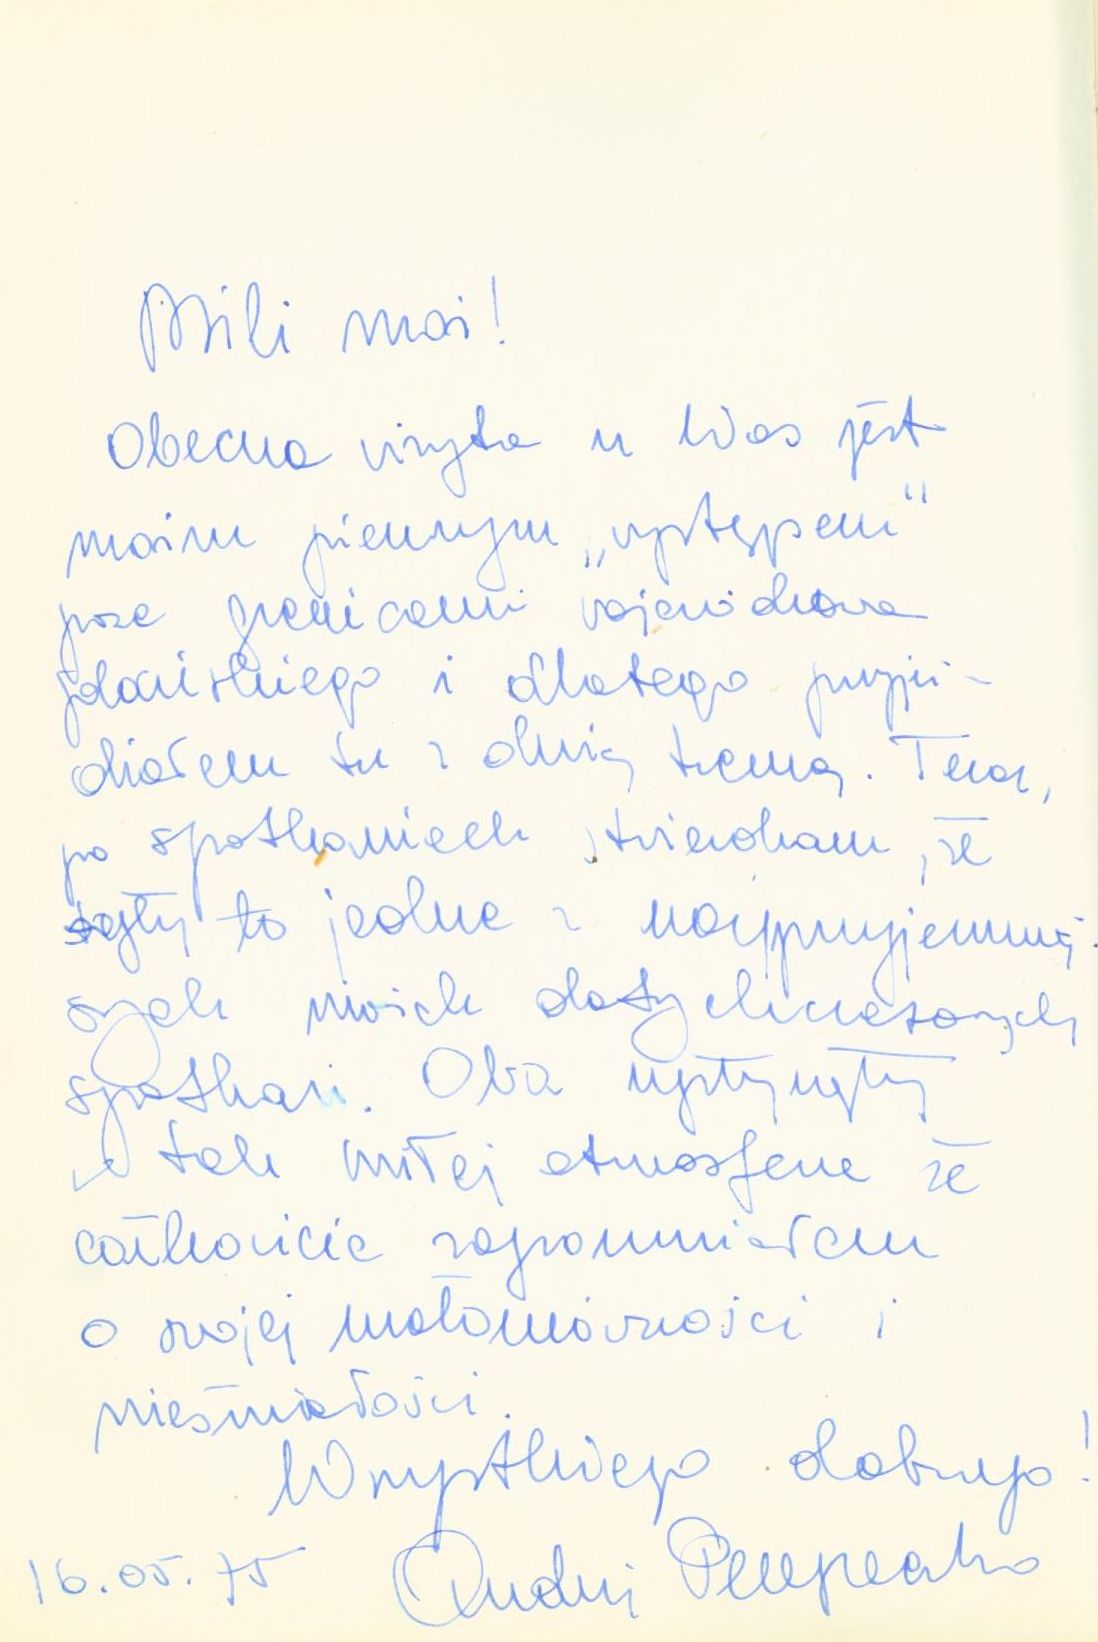 Mili moi!
Obecna wizyta u Was jest
moim pierwszym „występem"
poza granicami województwa
gdańskiego i dlatego przyje-
chałem tu z dużą tremą. Teraz,
po spotkaniach stwierdzam, że
były to jedne z najprzyjemniej-
szych moich dotychczasowych
spotkań. Oba upłynęły
w tak miłej atmosferze że
całkowicie zapomniałem
o swojej małomówności i
nieśmiałości.
Wszystkiego dobrego!
16.05.75 Andrzej Perepeczko